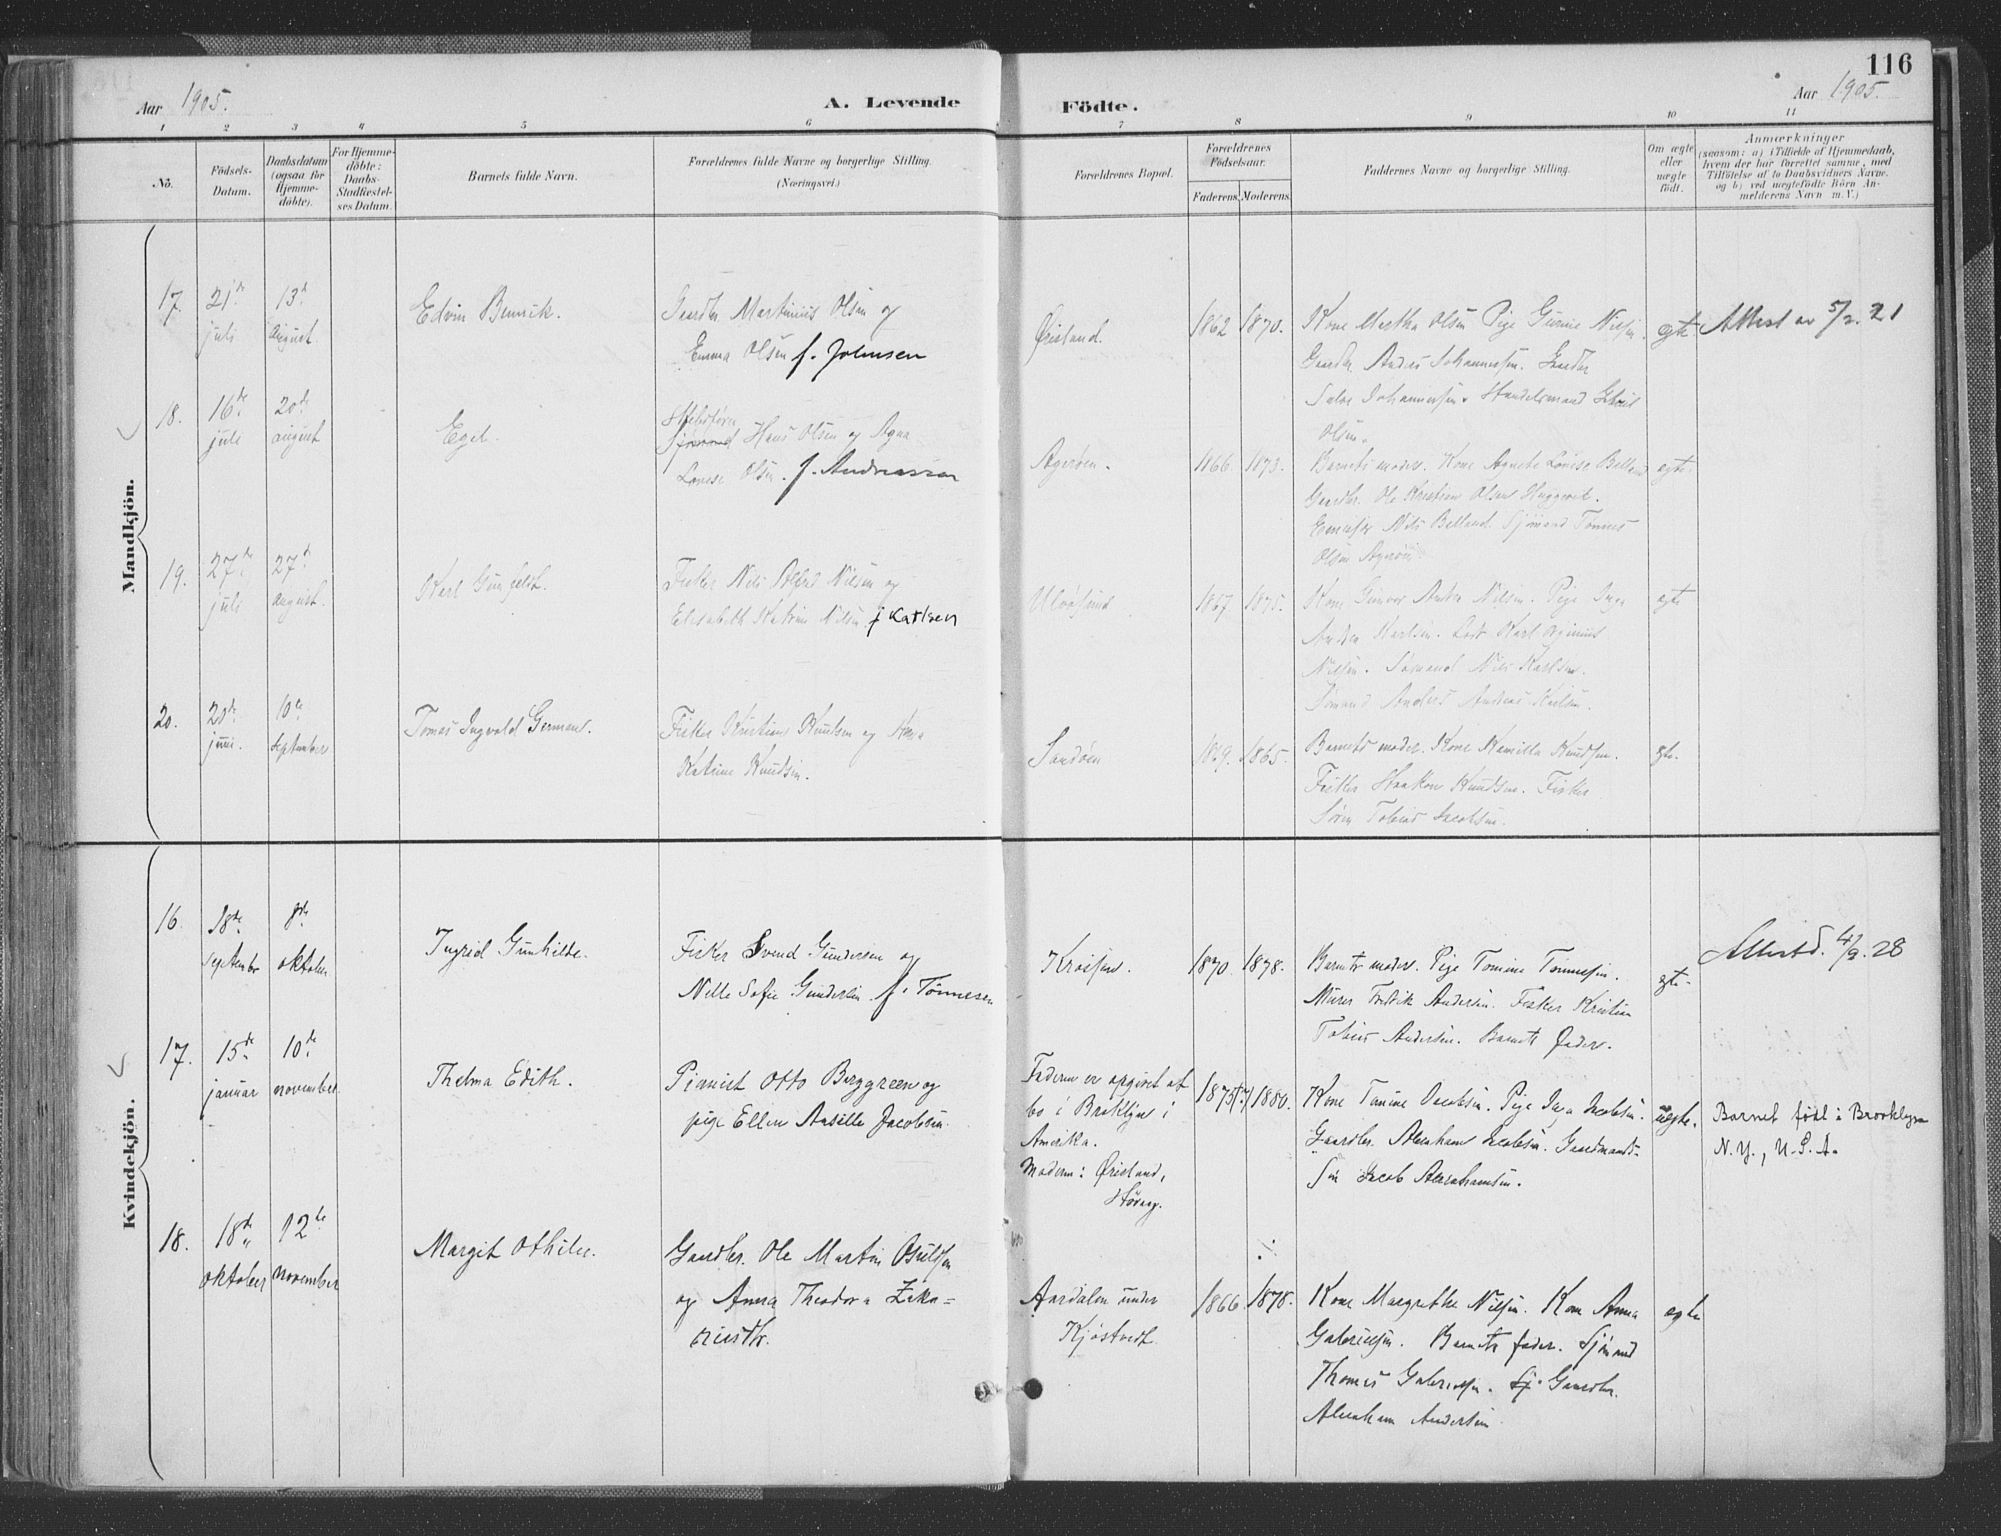 116
Aar 1905.
A. Levende
Födte.
Aar 1905.
1 2 3 4 5 6 7 8 9 10 11
No.
Födsels-
Datum.
Daabsdatum
(ogsaa for
Hjemme-
döbte).
For Hjemme-
döbte:
Daabs-
Stadfæstel-
ses Datum.
Barnets fulde Navn.
Forældrenes fulde Navne og borgerlige Stilling.
(Næringsvei.)
Forældrenes Bopæl.
Forældrenes
Födselsaar.
Faderens.
Moderens.
Faddernes Navne og borgerlige Stilling.
Om ægte
eller
uægte
födt.
Anmærkninger
(saasom: a) i Tilfælde af Hjemmedaab,
hvem der har forrettet samme, med
Tilföielse af to Daabsvidners Navne.
og b) ved uægtefödte Börn An-
melderens Navn m.V.)
Mandkjön.
17.
21de
juli
13de
august
Edvin Benrik.
Gaardbr. Martinius Olsen og
Emma Olsen f. Johnsen
Örisland.
1862
1870.
Kone Martha Olsen Pige Gurine Nilsen
Gaardbr. Andres Johannesen. Gaardbr
Salve Johannesen. Handelsmand
Olsen.
egte.
Attest av 5/2. 21
18.
16de
juli
20de
august
Egil.
Hans Olsen og Agna
Lovise Olsen. f. Andreassen
Agerøen.
1866.
1873.
Barnets moder. Kone Agnete Lovise Belland
Gaardbr. Ole Kristian Olsen
Nils Belland. Sjömand Tönnes
Olsen Agerøen
egte.
19.
27de
juli
27de
august.
Karl
Fisker Nils Alfred Nilsen og
Elisabeth Katrine Nilsen. f Karlsen
Ulvøsund
1867
1875.
Kone Gunvor Andrea Nilsen. Pige Inga
Andrea Karlsen. Karl
Nilsen. Sømand Nils Karlsen.
Sömand Anders Andreas Karlsen.
egte
20.
20de
juni.
10de
september
Tomas Ingvald Germann.
Fisker Kristian Knudsen og
Katrine Knudsen.
Sandøen
1869.
1865.
Barnets moder. Kone Kamilla Knudsen.
Fisker Haakon Knudsen. Fisker
Sören Tobias Jacobsen.
egte.
Kvindekjön.
16
18de
september
8de
oktober
Ingrid Gunhilde.
Fisker Svend Gundersen og
Nille Sofie Gundersen f. Tönnesen
1870.
1878.
Barnets moder. Pige Tomine Tönnesen.
Murer Fredrik Andersen. Fisker Kristian
Tobias Andersen. Barnets fader.
egte.
Attest d. 4/9. 28
17.
15de
januar
10de
november
Thelma Edith.
Pianist Otto Berggreen og
pige Ellen Jacobsen
Faderen er opgivet at
bo i Broklyn i
Amerika.
Moderen: Örisland,
1875(?)
1880.
Kone Tomine Jacobsen. Pige Inga Jacobsen.
Gaardbr. Abraham Jacobsen. Gaardmands-
søn Jacob Abrahamsen.
uegte.
Barnet født i Brooklyn
N.Y., U.S.A.
18.
18de
oktober
12te
november
Margit Othilie.
Gaardbr. Ole Martin Osuldsen
og Anna Theodora Zaka-
riasdtr.
Aardalen under
Kjøstvedt.
1866
1878.
Kone Margrethe Nilsen. Kone Anna
Gabrielsen. Barnets fader. Sjömand
Thomas Gabrielsen. Gaardbr.
Abraham Andersen
egte